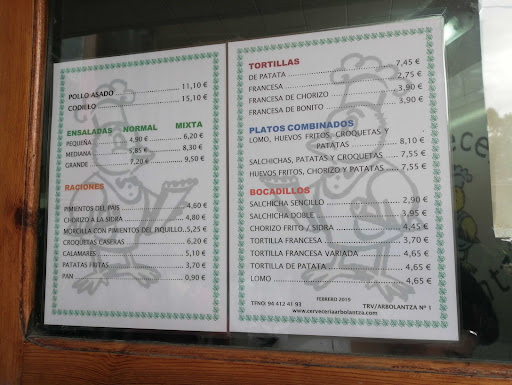 POLLO ASADO 11,10 €
CODILLO 15,10 €
ENSALADAS NORMAL MIXTA
PEQUEÑA 4,90 € 6,20 €
MEDIANA 5,85 € 8,30 €
GRANDE 7,20 € 9,50 €
RACIONES
PIMIENTOS DEL PAIS 4,60 €
CHORIZO A LA SIDRA 4,80 €
MORCILLA CON PIMIENTOS DEL PIQUILLO 5,25 €
CROQUETAS CASERAS 6,20 €
CALAMARES 5,10 €
PATATAS FRITAS 3,70 €
PAN 0,90 €
TORTILLAS
DE PATATA 7,45 €
FRANCESA 2,75 €
FRANCESA DE CHORIZO 3,90 €
FRANCESA DE BONITO 3,90 €
PLATOS COMBINADOS
LOMO, HUEVOS FRITOS, CROQUETAS Y
PATATAS 8,10 €
SALCHICHAS, PATATAS Y CROQUETAS 7,55 €
HUEVOS FRITOS, CHORIZO Y PATATAS 7,55 €
BOCADILLOS
SALCHICHA SENCILLO 2,90 €
SALCHICHA DOBLE 3,95 €
CHORIZO FRITO / SIDRA 4,45 €
TORTILLA FRANCESA 3,70 €
TORTILLA FRANCESA VARIADA 4,65 €
TORTILLA DE PATATA 4,65 €
LOMO 4,65 €
FEBRERO 2019
TFNO: 94 412 41 93 TRV/ARBOLANTZA Nº 1
www.cerveceriaarbolantza.com